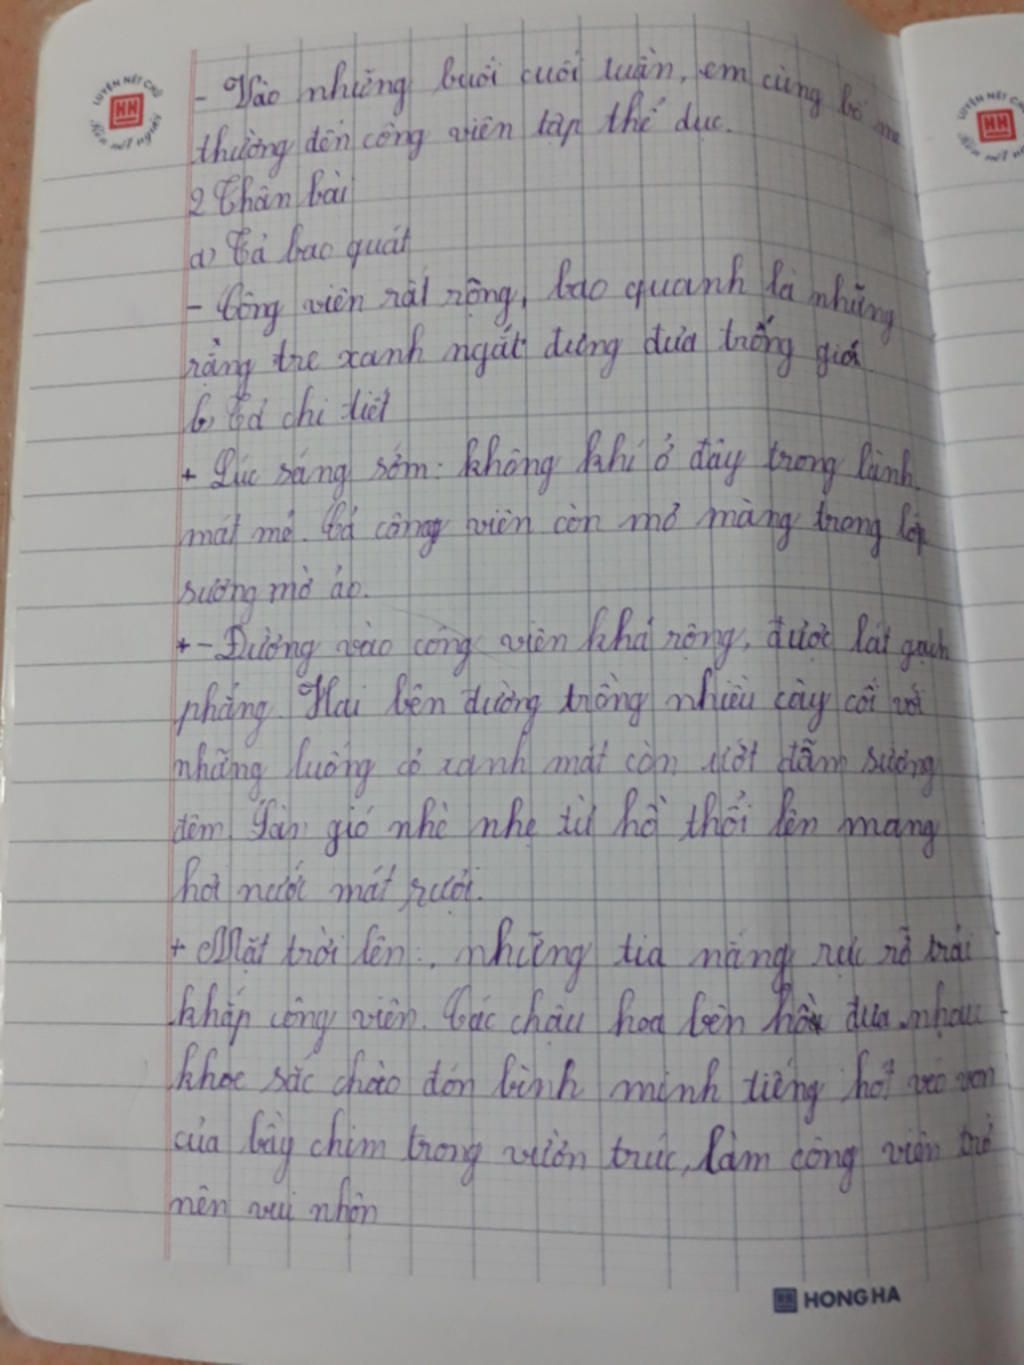 LUYỆN NÉT CHỮ
HH
Rèn nết người
LUYỆN NÉT
HH
Rèn nết
- Vào những buổi cuối tuần, em cùng bố mẹ
thường đến công viên tập thể dục.
2 Thân bài
a) Tả bao quát
- Công viên rất rộng, bao quanh là những
rặng tre xanh ngát đứng đưa trống gió
b) Tả chi tiết
+ Lúc sáng sớm: không khí ở đây trong lành.
mát mẻ. Cả công viên còn mơ màng trong lớp
sương mờ ảo.
+ - Đường vào công viên khá rộng, được lát gạch
phẳng. Hai bên đường trồng nhiều cây cối với
những luống cỏ xanh mát còn ướt đẫm sương
đêm. Làn gió nhè nhẹ từ hồ thổi lên mang
hơi nước mát rượi.
+ Mặt trời lên: những tia nắng rực rỡ trải
khắp công viên. Các chậu hoa bên hồ đua nhau
khoe sắc chào đón bình minh tiếng hót véo von
của bầy chim trong vườn trúc, làm công viên trở
nên vui nhộn
HH HONG HA